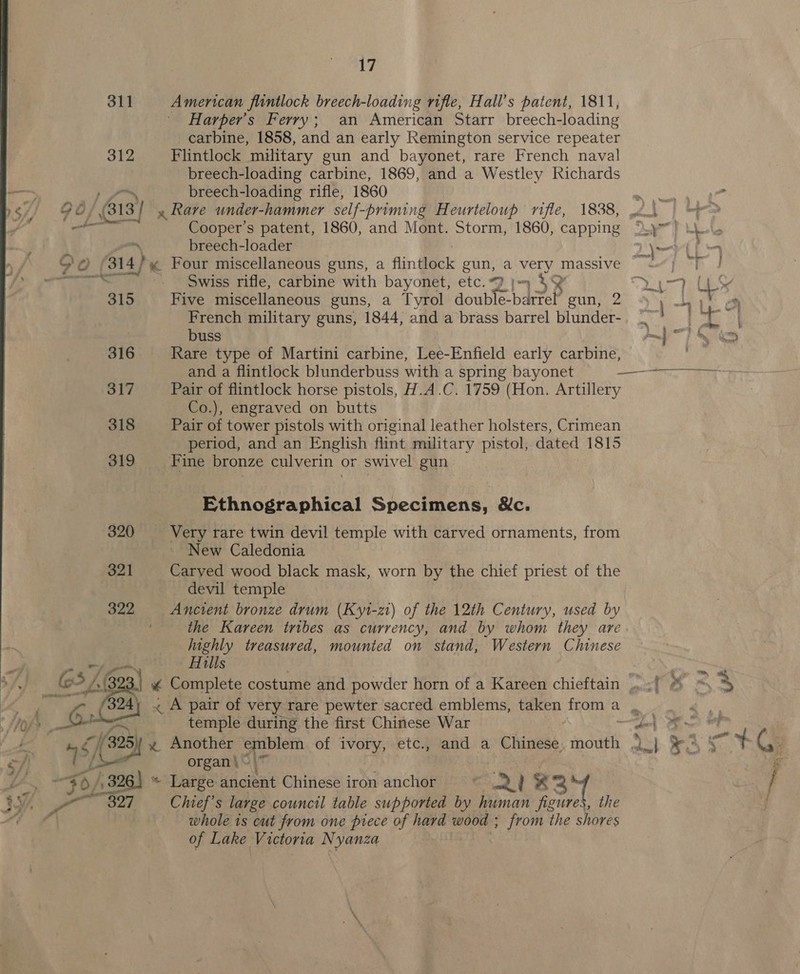 17
311 American flintlock breech-loading rifle, Hall's patent, 1811,
Harper's Ferry; an American Starr breech-loading
carbine, 1858, and an early Remington service repeater
312 Flintlock military gun and bayonet, rare French naval
breech-loading carbine, 1869, and a Westley Richards
breech-loading rifle, 1860
90/ 313 x Rare under-hammer self-priming Heurteloup rifle, 1838,
Cooper's patent, 1860, and Mont. Storm, 1860, capping
breech-loader
90 314 x Four miscellaneous guns, a flintlock gun, a very massive
Swiss rifle, carbine with bayonet, etc.
315 Five miscellaneous guns, a Tyrol double-barrel gun, 2
French military guns, 1844, and a brass barrel blunder-
buss
316 Rare type of Martini carbine, Lee-Enfield early carbine,
and a flintlock blunderbuss with a spring bayonet
317 Pair of flintlock horse pistols, H.A.C. 1759 (Hon. Artillery
Co.), engraved on butts
318 Pair of tower pistols with original leather holsters, Crimean
period, and an English flint military pistol, dated 1815
319 Fine bronze culverin or swivel gun
Ethnographical Specimens, &c.
320 Very rare twin devil temple with carved ornaments, from
New Caledonia
321 Carved wood black mask, worn by the chief priest of the
devil temple
322 Ancient bronze drum (Kyi-zi) of the 12th Century, used by
the Kareen tribes as currency, and by whom they are
highly treasured, mounted on stand, Western Chinese
Hills
323 x Complete costume and powder horn of a Kareen chieftain
324 x A pair of very rare pewter sacred emblems, taken from a
temple during the first Chinese War
325 x Another emblem of ivory, etc., and a Chinese mouth
organ
326 x Large ancient Chinese iron anchor
327 Chief's large council table supported by human figures, the
whole is cut from one piece of hard wood; from the shores
of Lake Victoria Nyanza